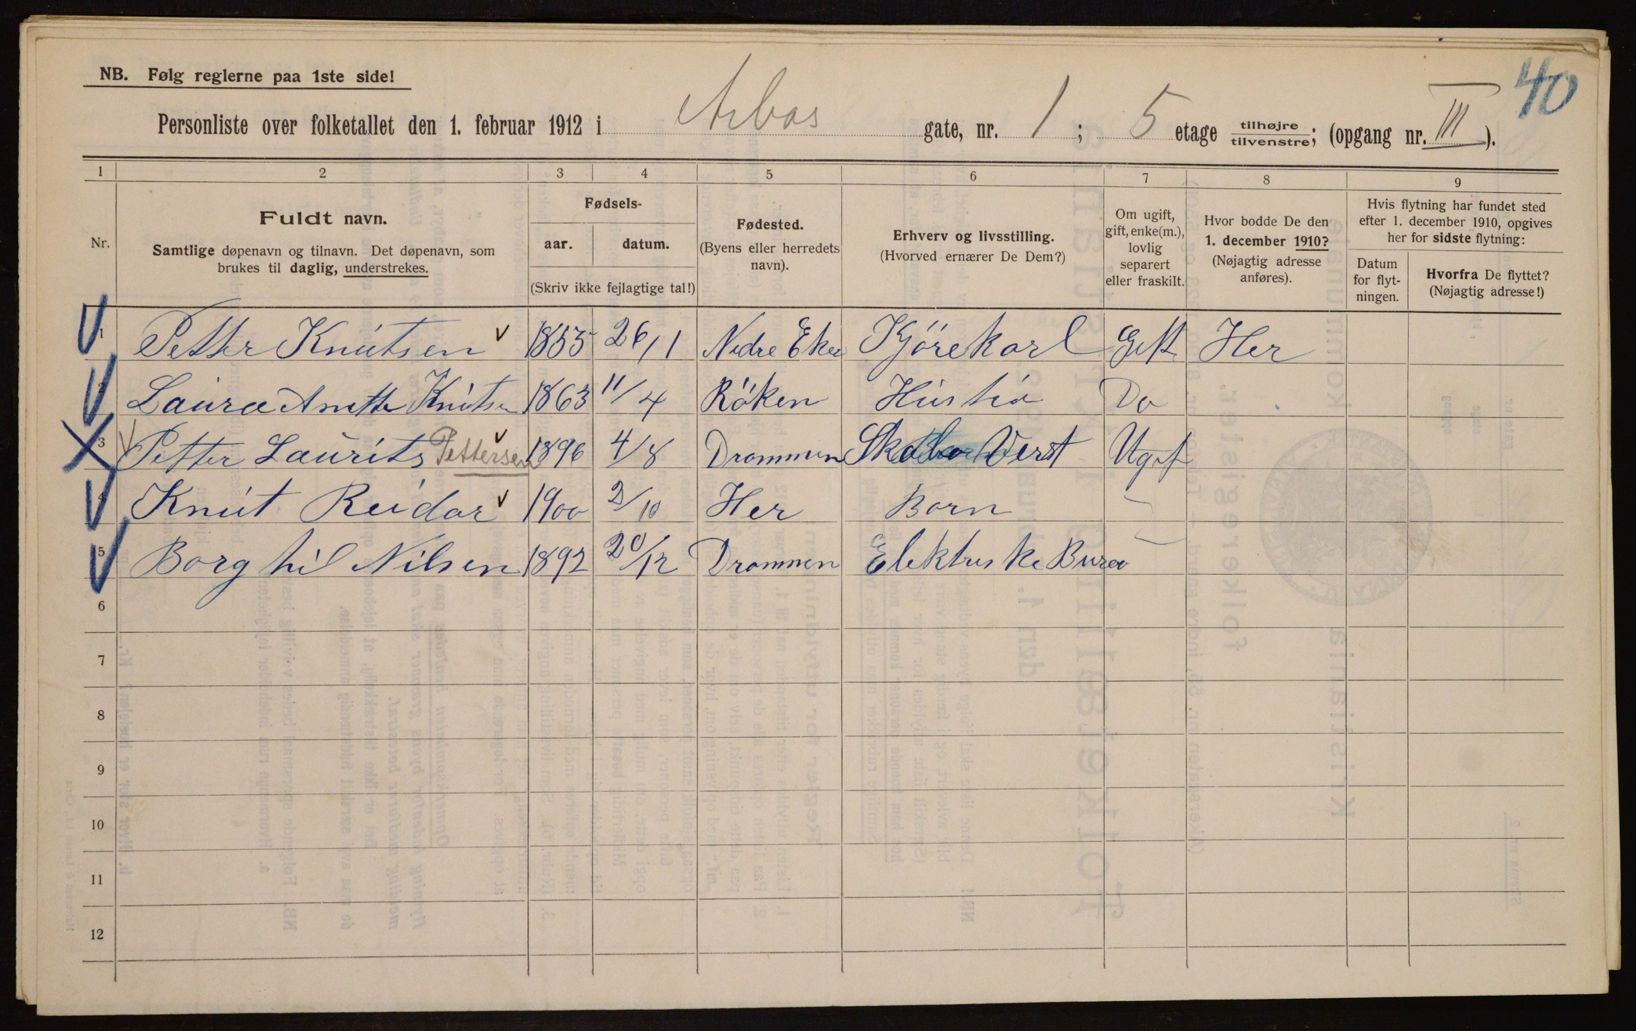 NB. Følg reglerne paa 1ste side!
40
Personliste over folketallet den 1. februar 1912 i Arbos gate, nr. 1 ; 5 etage tilhøjre tilvenstre; (opgang nr. III ).
1 2 3 4 5 6 7 8 9
Nr.
Fuldt navn.
Samtlige døpenavn og tilnavn. Det døpenavn, som
brukes til daglig, understrekes.
Fødsels-
aar. datum.
(Skriv ikke fejlagtige tal!)
Fødested.
(Byens eller herredets
navn).
Erhverv og livsstilling.
(Hvorved ernærer De Dem?)
Om ugift,
gift, enke(m.),
lovlig
separert
eller fraskilt.
Hvor bodde De den
1. december 1910?
(Nøjagtig adresse
anføres).
Hvis flytning har fundet sted
efter 1. december 1910, opgives
her for sidste flytning:
Datum
for flyt-
ningen.
Hvorfra De flyttet?
(Nøjagtig adresse!)
1 Petter Knutsen 1855 26/1 Nedre Eker Kjørekarl Gift Her
2 Laura Anette Knutsen 1863 11/4 Röken Hustru Do
3 Petter Laurits Pettersen 1896 4/8 Drammen Ugift
4 Knut Reidar 1900 2/10 Her Barn —
5 Borghil Nilsen 1892 20/12 Drammen Elektriske Burea —
6
7
8
9
10
11
12